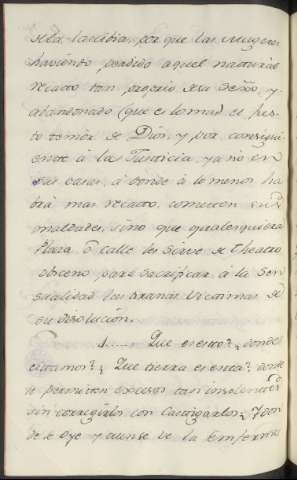 de la lascibia, por que las Mugeres
haviendo perdido aquel natural
recato tan propio de su Sexo, y
abandonado (que es lo mas) el jus-
to temor de Dios, y por consigui-
ente à las Justicia, ya no en
sus casas, à donde à lo menos ha
bia mas recato, cometen sus
maldades, sino que qualesquiera
Plaza, ò calle les sirve de theatro
obceno para sacrificar à la sen
sualidad las tiranas victimas de
su disolucion.
Que es esto? donde
estamos? Que tierra es esta? donde
se permiten excesos tan insolentes
sin corregirlos con Castigarlos, Don
de se oye y aunse ve la Enferme